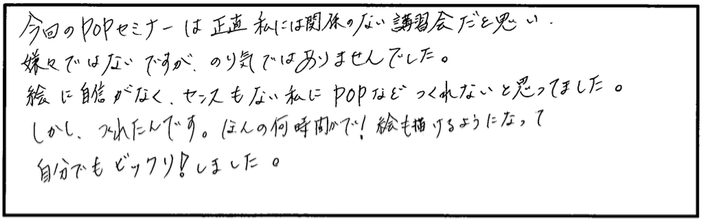 今回のPOPセミナーは正直私には関係のない講習会だと思い、
嫌々ではないですが、のり気ではありませんでした。
絵に自信がなく、センスもない私にPOPなどつくれないと思ってました。
しかし、つくれたんです。ほんの何時間かで!絵も描けるようになって
自分でもビックリ!しました。